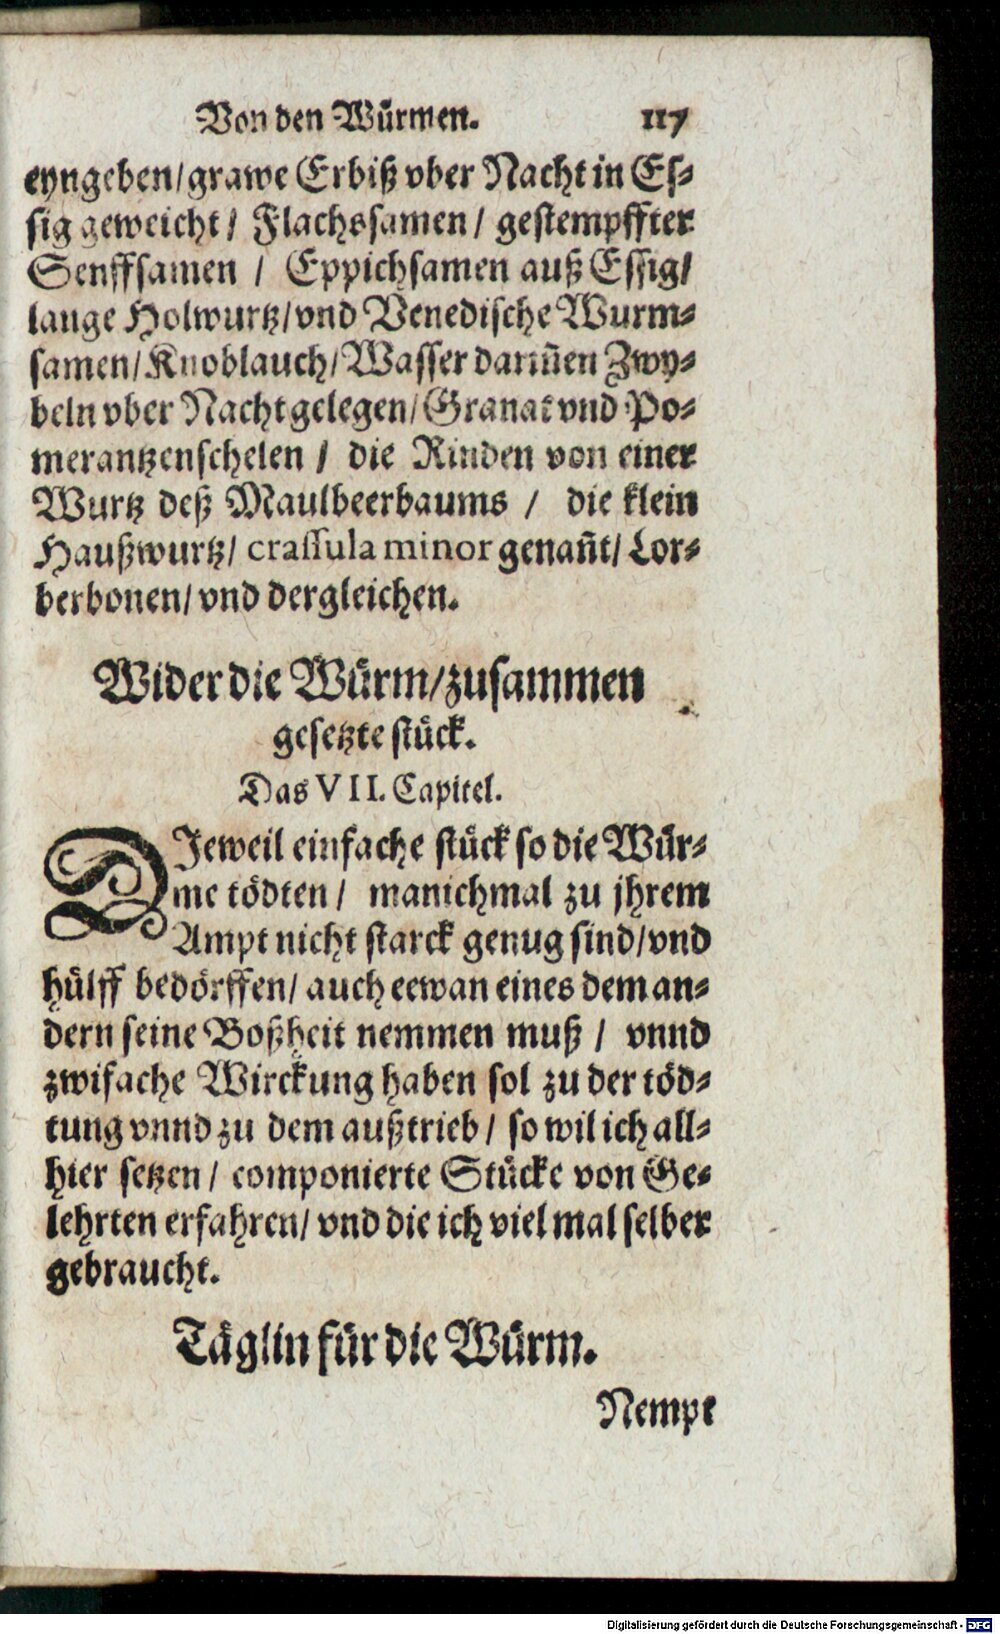 Von den Würmen. 117
eyngeben/grawe Erbiß vber Nacht in Es⸗
sig geweicht/ Flachssamen/ gestempffter
Senffsamen / Eppichsamen auß Essig/
lange Holwurtz/vnd Venedische Wurm⸗
samen/Knoblauch/Wasser dariñen Zwy⸗
beln vber Nacht gelegen/Granat vnd Po⸗
merantzenschelen / die Rinden von einer
Wurtz deß Maulbeerbaums / die klein
Haußwurtz/ crassula minor genañt/ Lor⸗
berbonen/vnd dergleichen.
Wider die Würm/zusammen
gesetzte stück.
Das VII. Capitel.
DJeweil einfache stück so die Wür⸗
me tödten/ manichmal zu jhrem
Ampt nicht starck genug sind/vnd
hülff bedörffen/ auch eewan eines dem an⸗
dern seine Boßheit nemmen muß / vnnd
zwifache Wirckung haben sol zu der töd⸗
tung vnnd zu dem außtrieb/ so wil ich all⸗
hier setzen/ componierte Stücke von Ge⸗
lehrten erfahren/ vnd die ich viel mal selber
gebraucht.
Täglin für die Würm.
Nempt
Digitalisierung gefördert durch die Deutsche Forschungsgemeinschaft - DFG